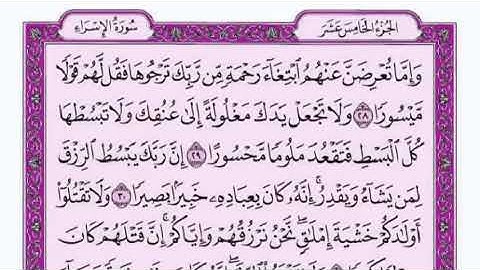 سُورَةُ الإِسْرَاءِ
الجُزْءُ الخَامِسَ عَشَرَ
وَإِمَّا تُعْرِضَنَّ عَنْهُمُ ٱبْتِغَآءَ رَحْمَةٍ مِّن رَّبِّكَ تَرْجُوهَا فَقُل لَّهُمْ قَوْلًا
مَّيْسُورًا ٢٨ وَلَا تَجْعَلْ يَدَكَ مَغْلُولَةً إِلَىٰ عُنُقِكَ وَلَا تَبْسُطْهَا
كُلَّ ٱلْبَسْطِ فَتَقْعُدَ مَلُومًا مَّحْسُورًا ٢٩ إِنَّ رَبَّكَ يَبْسُطُ ٱلرِّزْقَ
لِمَن يَشَآءُ وَيَقْدِرُ ۚ إِنَّهُۥ كَانَ بِعِبَادِهِۦ خَبِيرًۢا بَصِيرًا ٣٠ وَلَا تَقْتُلُوٓا۟
أَوْلَٰدَكُمْ خَشْيَةَ إِمْلَٰقٍ ۖ نَّحْنُ نَرْزُقُهُمْ وَإِيَّاكُمْ ۚ إِنَّ قَتْلَهُمْ كَانَ